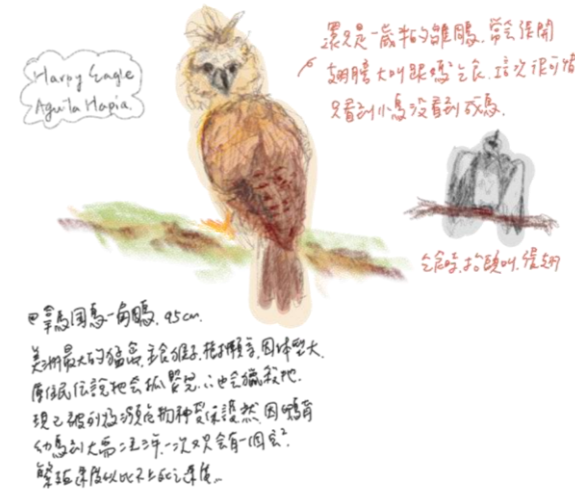 Harpy Eagle
Aguila Hapia.
還只是一歲半的雛鵰,常會張開
翅膀大叫跟媽乞食,這次很可惜
只看到小鳥沒看到成鳥.
乞食時,抬頭叫,張翅
國鳥—角鵰, 95cm.
美洲最大的猛禽,主食猴子、樹懶等,因体型大,
原住民傳說牠會抓嬰兒,也會獵殺牠.
現已被列為瀕危物種受保護然,因鳥育
幼鳥到大需二至三年,一次只會有一個
繁殖速度